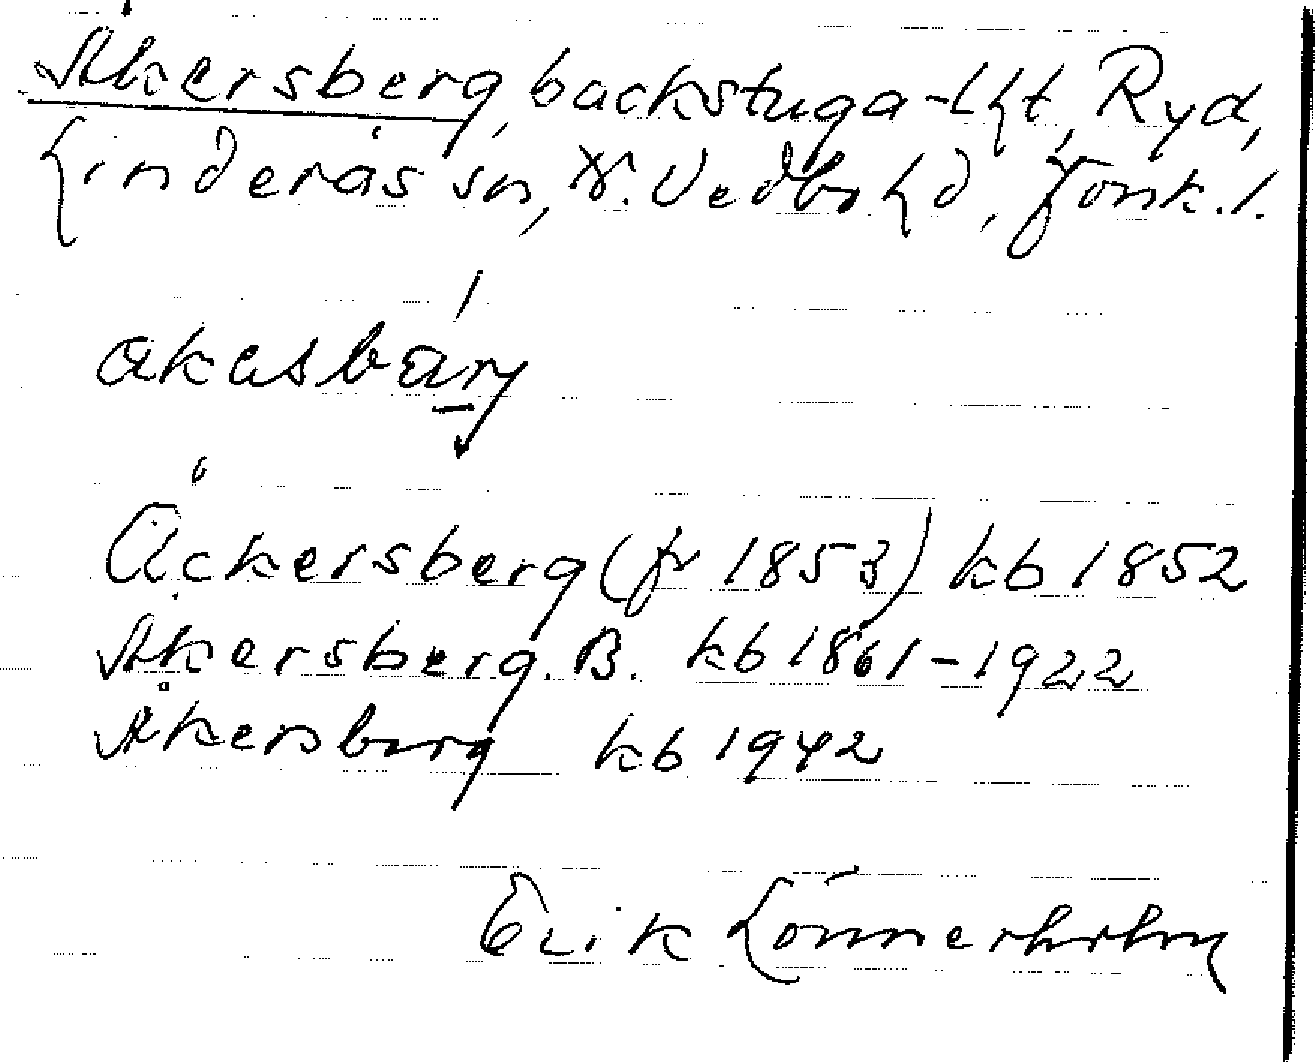 Åkersberg, backstuga-lht, Ryd,
Linderås sn, N. Vedbo hd, Jönk. l.
åkasbärj
Åckersberg (fr 1853) kb 1852
Åkersberg. B. kb 1861-1922
Åkersberg kb 1942
Erik Lönnerholm